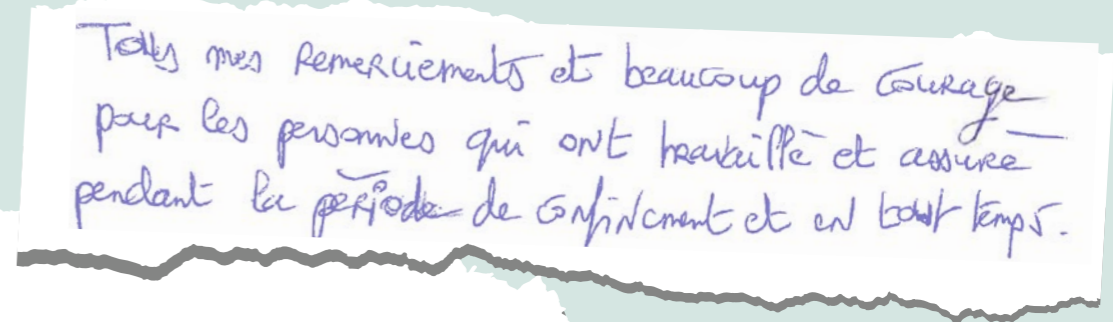 Tous mes Remerciements et beaucoup de courage
pour les personnes qui ont travaillé et assuré
pendant la période de confinement et en tout temps.